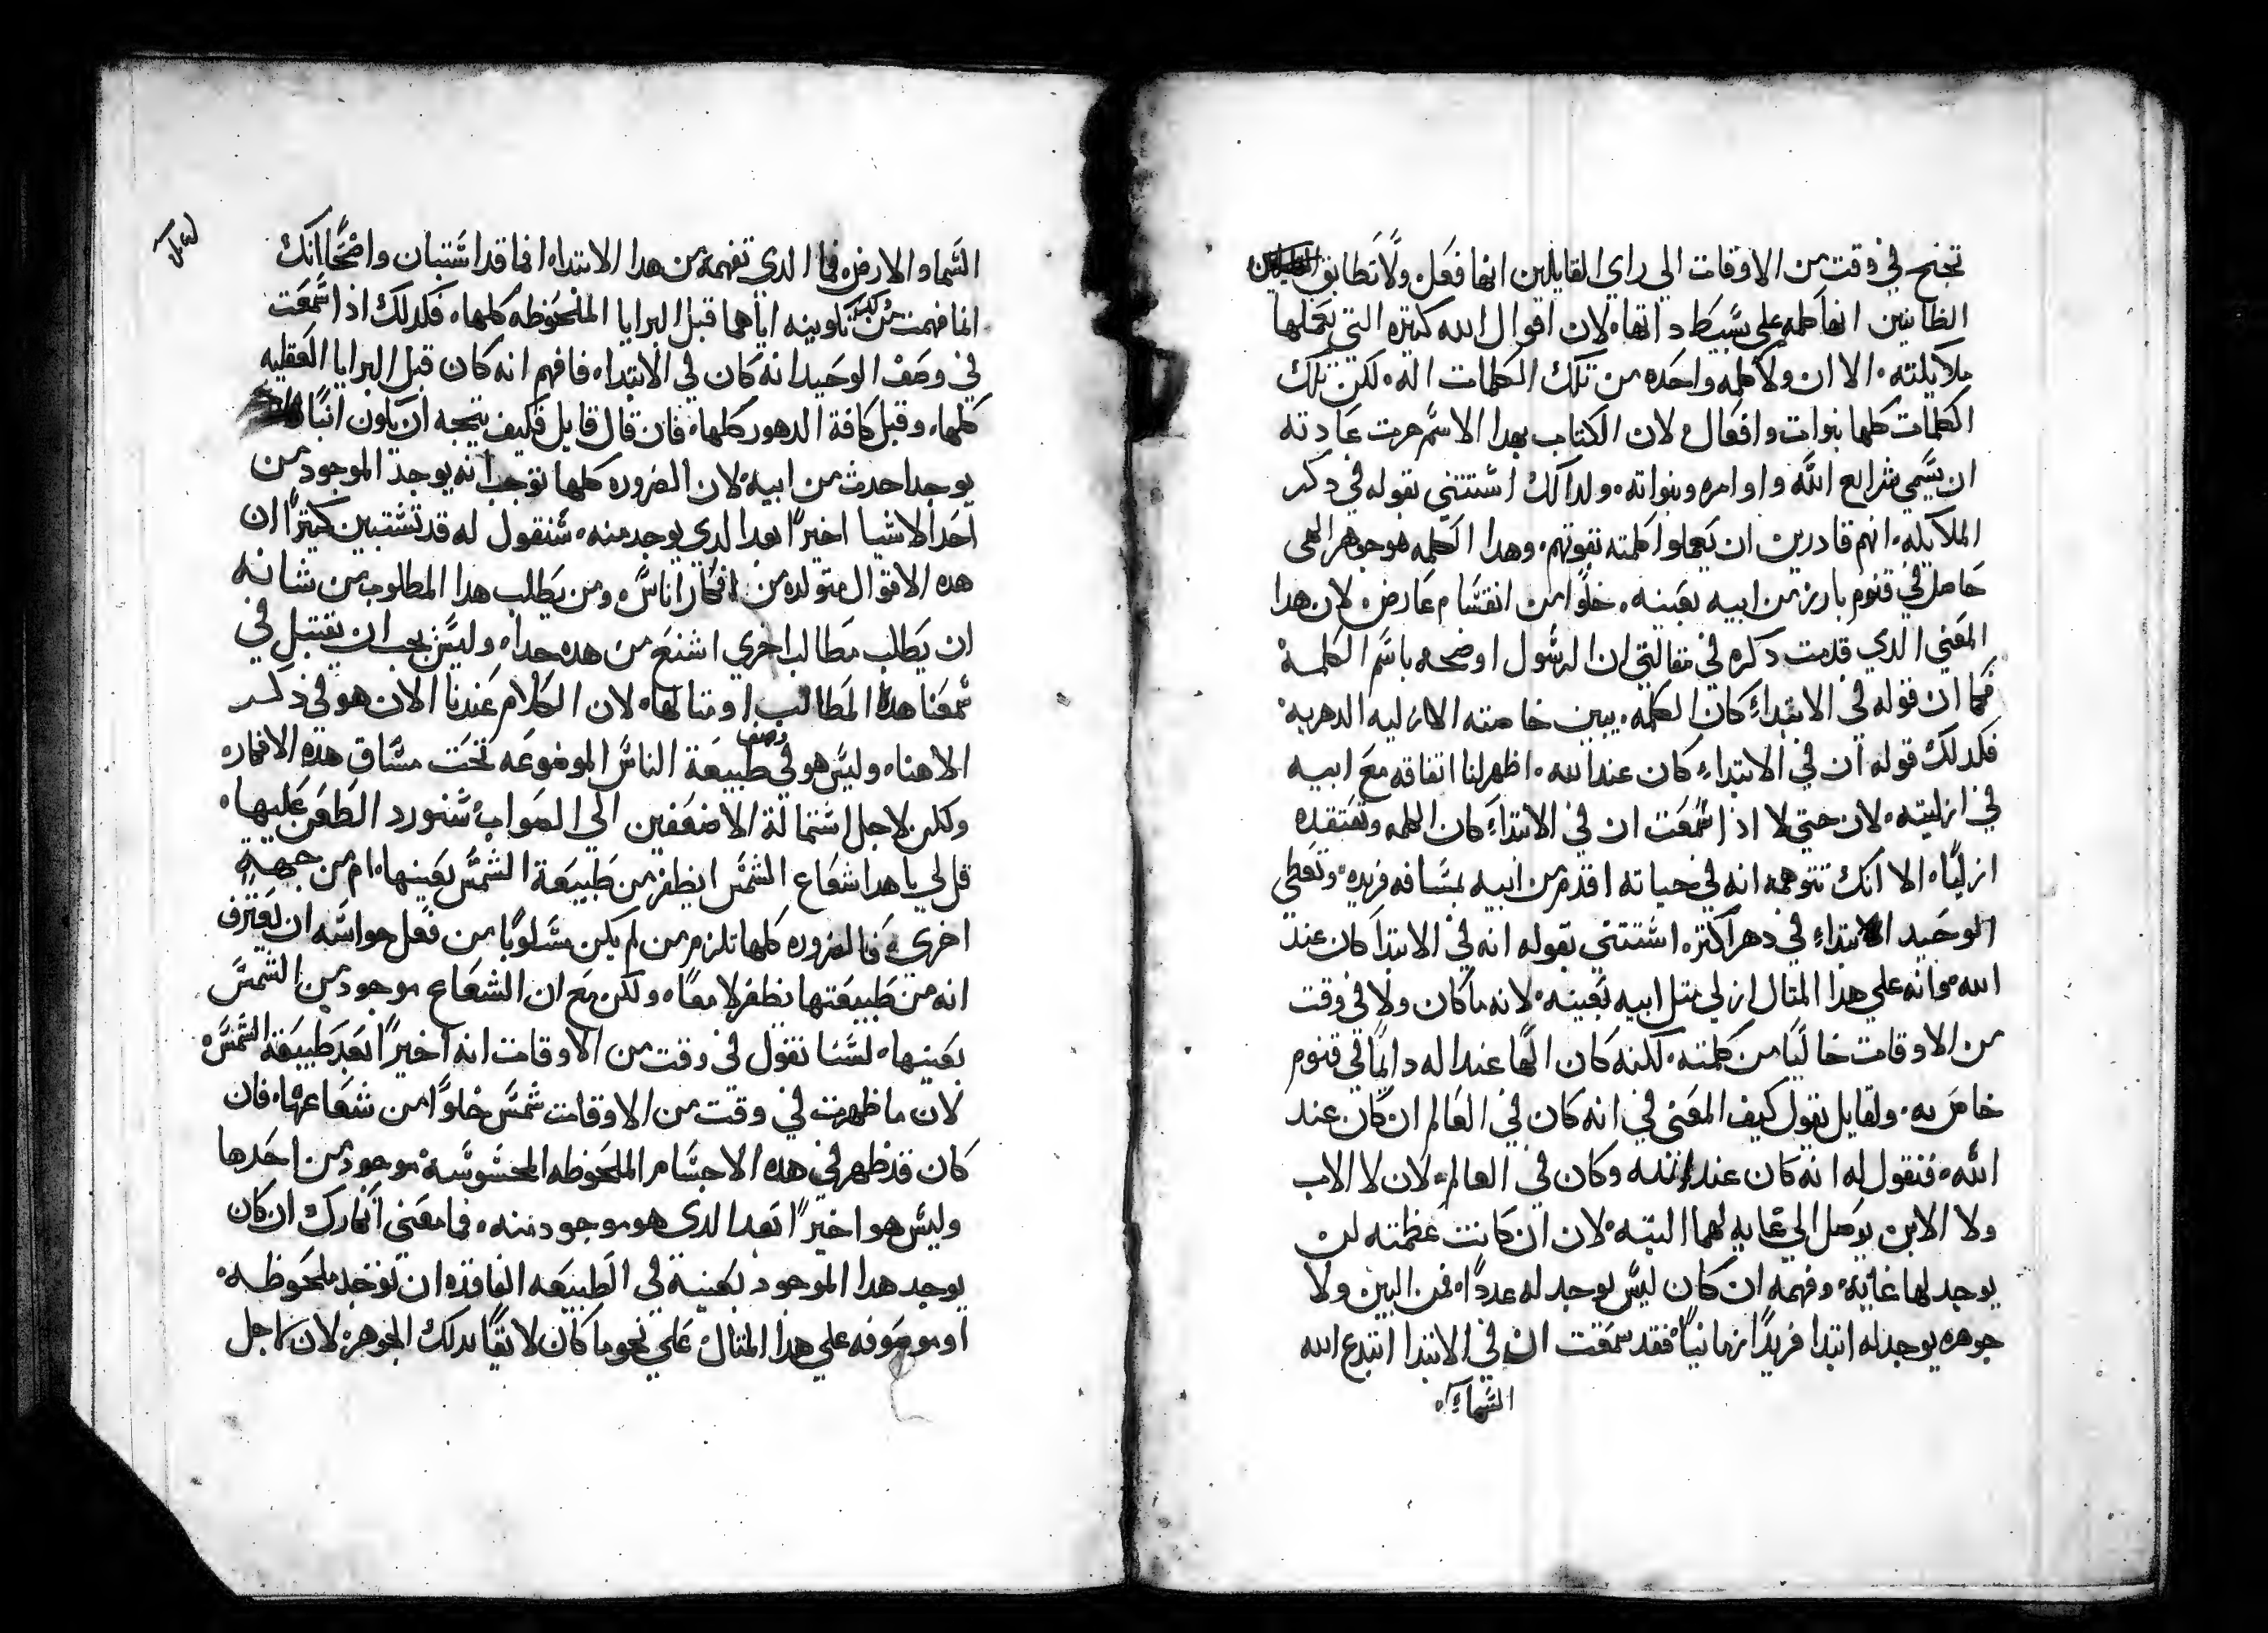 تجنح في وقت من الاوقات الي راي القايلين انها فعل ولا تطابق
الظانين انها كلمه علي بسيط داتها، لان اقوال الله كتيره التي يعملها
ملايكته، الا ان ولا كلمه واحده من تلك الكلمات اله، لكن تلك
الكلمات كلها نبوات وافعال، لان الكتاب بهدا الاسم جرت عادته
ان يسمي شرايع الله واوامره ونبواته، ولدالك استتني بقوله في دكر
الملايكه، انهم قادرين ان يعملوا كلمته بقوتهم، وهدا الكلمه هو جوهر الهي
حاصل في قنوم بارز من ابيه بعينه، خلوًا من انقسام عارض، لان هدا
المعني الدي قدمت دكره في مقالتي ان الرسول اوضحه باسم الكلمة
فكما ان قوله في الابتداءِ كان الكلمه، يبين خاصته الازليه الدهريه،
فكدلك قوله ان في الابتداءِ كان عند الله، اظهر لنا اتفاقه مع ابيه
في ازليته، لان حتي لا اذ اسمعت ان في الابتداءِ كان الكلمه وتعتقده
ازليًا، الا انك تتوهمه انه في حياته اقدم من ابيه بمسافه فريده، وتعطي
الوحيد الابتداءِ في دهر اكتر، استتني بقوله انه في الابتدا كان عند
الله، وانه علي هدا المتال ازلي متل ابيه بعينه، لانه ما كان ولا في وقت
من الاوقات خاليًا من كلمته، لكنه كان الهًا عند اله دايمًا في قنوم
خاص به، ولقايل يقول كيف المعني في انه كان في العالم ان كان عند
الله، فنقول له انه كان عند الله وكان في العالم، لان لا الاب
ولا الابن يوصل الي غايه لهما البته، لان ان كانت عظمته لن
يوجد لها غايه، وفهمه ان كان ليس يوجد له عددًا، فمن البين ولا
جوهره يوجد له ابتدا فريدًا زمانيًا، فقد سمعت ان في الابتدا ابتدع الله
السماءَ
السما والارض، فما الدي تفهمه من هدا الابتداء، افما قد استبان واضحًا انك
انما فهمت من تكوينه اياهما قبل البرايا الملحوظه كلها، فكدلك اذ اسمعت
في وصف الوحيد انه كان في الابتداء، فافهم انه كان قبل البرايا العقليه
كلها، وقبل كافة الدهور كلها، فان قال قايل فكيف يتجه ان يكون ابنًا
يوجد احدث من ابيه، لان الضروره كلها توجب انه يوجد الموجود من
احد الاشيا اخيرًا بعد الدي يوجد منه، سنقول له قد تستبين كتيرًا ان
هده الاقوال متولده من افكار اناس، ومن يطلب هدا المطلوب من شانه
ان يطلب مطالب اخري اشنع من هده جدا، وليس يجب ان يقتبل في
سمعنا هده المطالب او متالها، لان الكلام عندنا الان هو في ذكر
الاهنا، وليس هو في وصف طبيعة الناس الموضوعه تحت مساق هده الافكار،
ولكن لاجل استمالة الاضعفين الي الصواب سنورد الطعن عليها،
قل لي يا هدا شعاع الشمس ايظفر من طبيعة الشمس بعينها، ام من جهةٍ
اخري، فالضروره كلها تلزم من لم يكن مسلوبًا من فعل حواسه ان يعترف
انه من طبيعتها يظفر لامعًا، ولكن مع ان الشعاع موجود من الشمس
بعينها، لسنا نقول في وقت من الاوقات انه اخيرًا بعد طبيعة الشمس،
لان ما ظهرت في وقت من الاوقات شمس خلوًا من شعاعها، فان
كان قد ظهر في هده الاجسام الملحوظه المحسوسه موجود من احدها
وليس هو اخيرًا بعد الدي هو موجود منه، فما معني انكارك ان كان
يوجد هدا الموجود بعينه في الطبيعه الفاقده ان توخد ملحوظه،
او موصوفه علي هدا المتال، علي نحو ما كان لايقًا بدلك الجوهر، لان لاجل